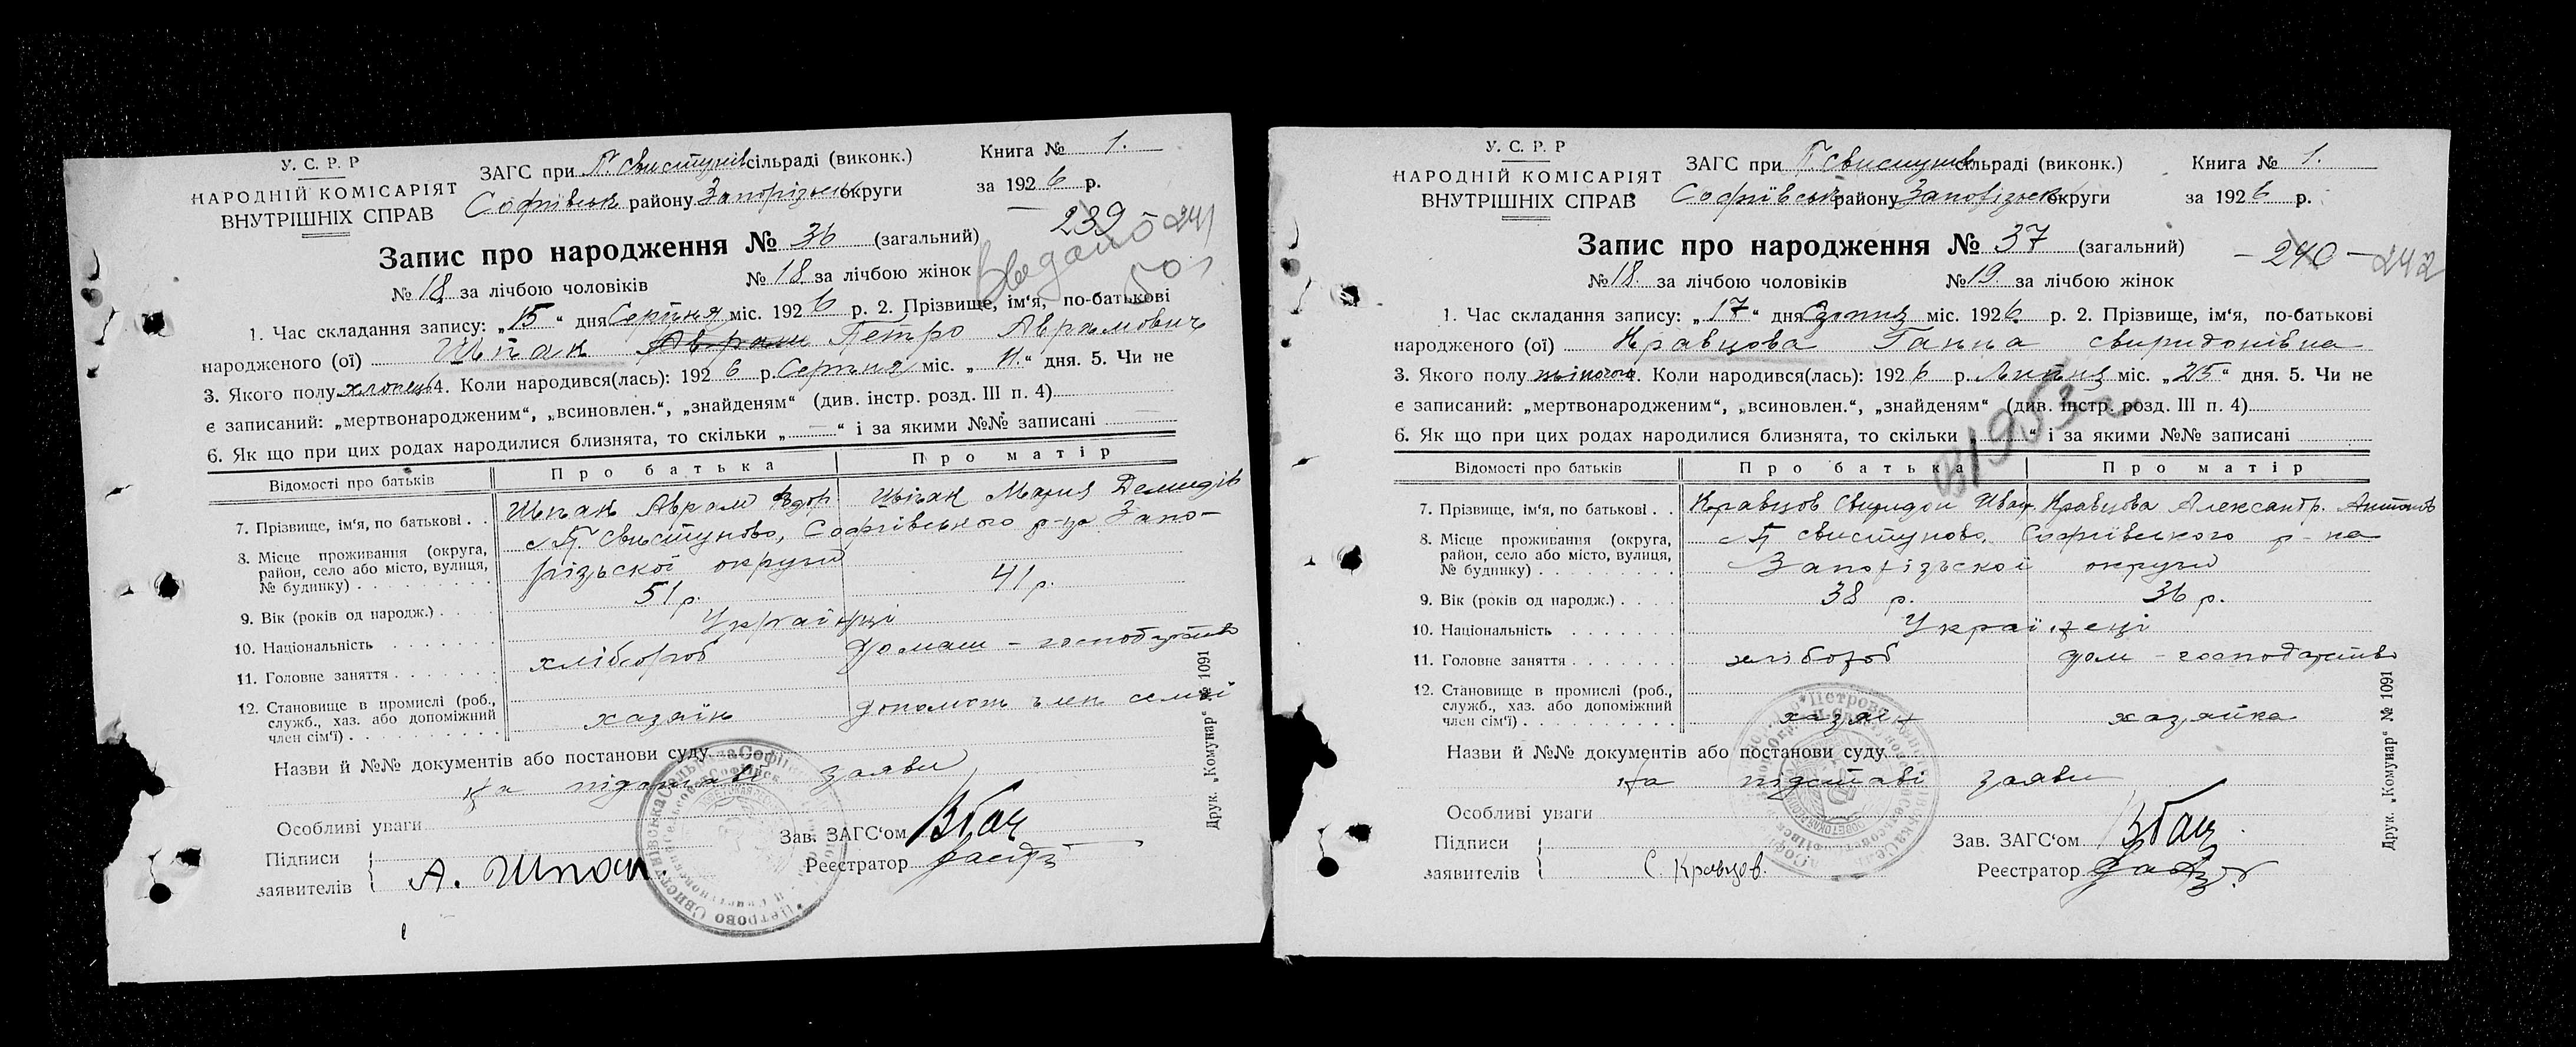 У. С. Р. Р
НАРОДНІЙ КОМІСАРІЯТ
ВНУТРІШНІХ СПРАВ
ЗАГС при П. Свистунів сільраді (виконк.)
Софіївськ району Запорізьск округи
Книга № 1.
за 1926 р.
239 - 241
Запис про народження № 36 (загальний)
№ 18 за лічбою чоловіків № 18 за лічбою жінок
1. Час складання запису: „15“ дня Серпня міс. 1926 р. 2. Прізвище, ім‘я, по-батькові
народженого (ої) Шпак Аврам Петро Аврамович
3. Якого полу хлопець 4. Коли народився(лась): 1926 р. Серпня міс. „11.“ дня. 5. Чи не
є записаний: „мертвонародженим“, „всиновлен.“, „знайденям“ (див. інстр. розд. III п. 4)
6. Як що при цих родах народилися близнята, то скільки „—“ і за якими №№ записані
Відомості про батьків Про батька Про матір
7. Прізвище, ім‘я, по батькові . . Шпак Аврам Федор. Шпак Мария Демидів
8. Місце проживання (округа, район, село або місто, вулиця, № будинку) . . . с. П. Свистуново, Софіївського р-на Запо-
різької округи
9. Вік (років од народж.) . . . 51 р. 41 р.
10. Національність . . . Українці
11. Головне заняття . . . хлібороб Домаш - господарство
12. Становище в промислі (роб., служб., хаз. або допоміжний член сім‘ї) . . . хазяїн допомог член семьї
Назви й №№ документів або постанови суду
на підставі заяви
Особливі уваги
Зав. ЗАГС‘ом
Підписи
заявителів А. Шпак.
Реєстратор
Друк. „Комунар“ № 1091
У. С. Р. Р
НАРОДНІЙ КОМІСАРІЯТ
ВНУТРІШНІХ СПРАВ
ЗАГС при П. Свистунів сільраді (виконк.)
Софіївськ району Запорізьск округи
Книга № 1.
за 1926 р.
Запис про народження № 37 (загальний)
- 240 - 242
№ 18. за лічбою чоловіків № 19. за лічбою жінок
1. Час складання запису: „17“ дня міс. 1926. р. 2. Прізвище, ім‘я, по-батькові
народженого (ої) Кравцова Ганна Свиридонівна
3. Якого полу жіночого 4. Коли народився(лась): 1926 р. Липня міс. „25“ дня. 5. Чи не
є записаний: „мертвонародженим“, „всиновлен.“, „знайденям“ (див. інстр. розд. III п. 4)
6. Як що при цих родах народилися близнята, то скільки „ “ і за якими №№ записані
Відомості про батьків Про батька Про матір
7. Прізвище, ім‘я, по батькові . . Кравцов Свиридон Иван. Кравцова Александр. Антонов
8. Місце проживання (округа, район, село або місто, вулиця, № будинку) . . . с. П. Свистуново, Софіївського р-на
Запорізької округи
9. Вік (років од народж.) . . . 38 р. 36 р.
10. Національність . . . Українеці
11. Головне заняття . . . хлібороб дом - господарство
12. Становище в промислі (роб., служб., хаз. або допоміжний член сім‘ї) . . . хазяїн хазяйка
Назви й №№ документів або постанови суду
на підставі заяви
Особливі уваги
Зав. ЗАГС‘ом
Підписи
заявителів С. Кравцов.
Реєстратор
Друк. „Комунар“ № 1091